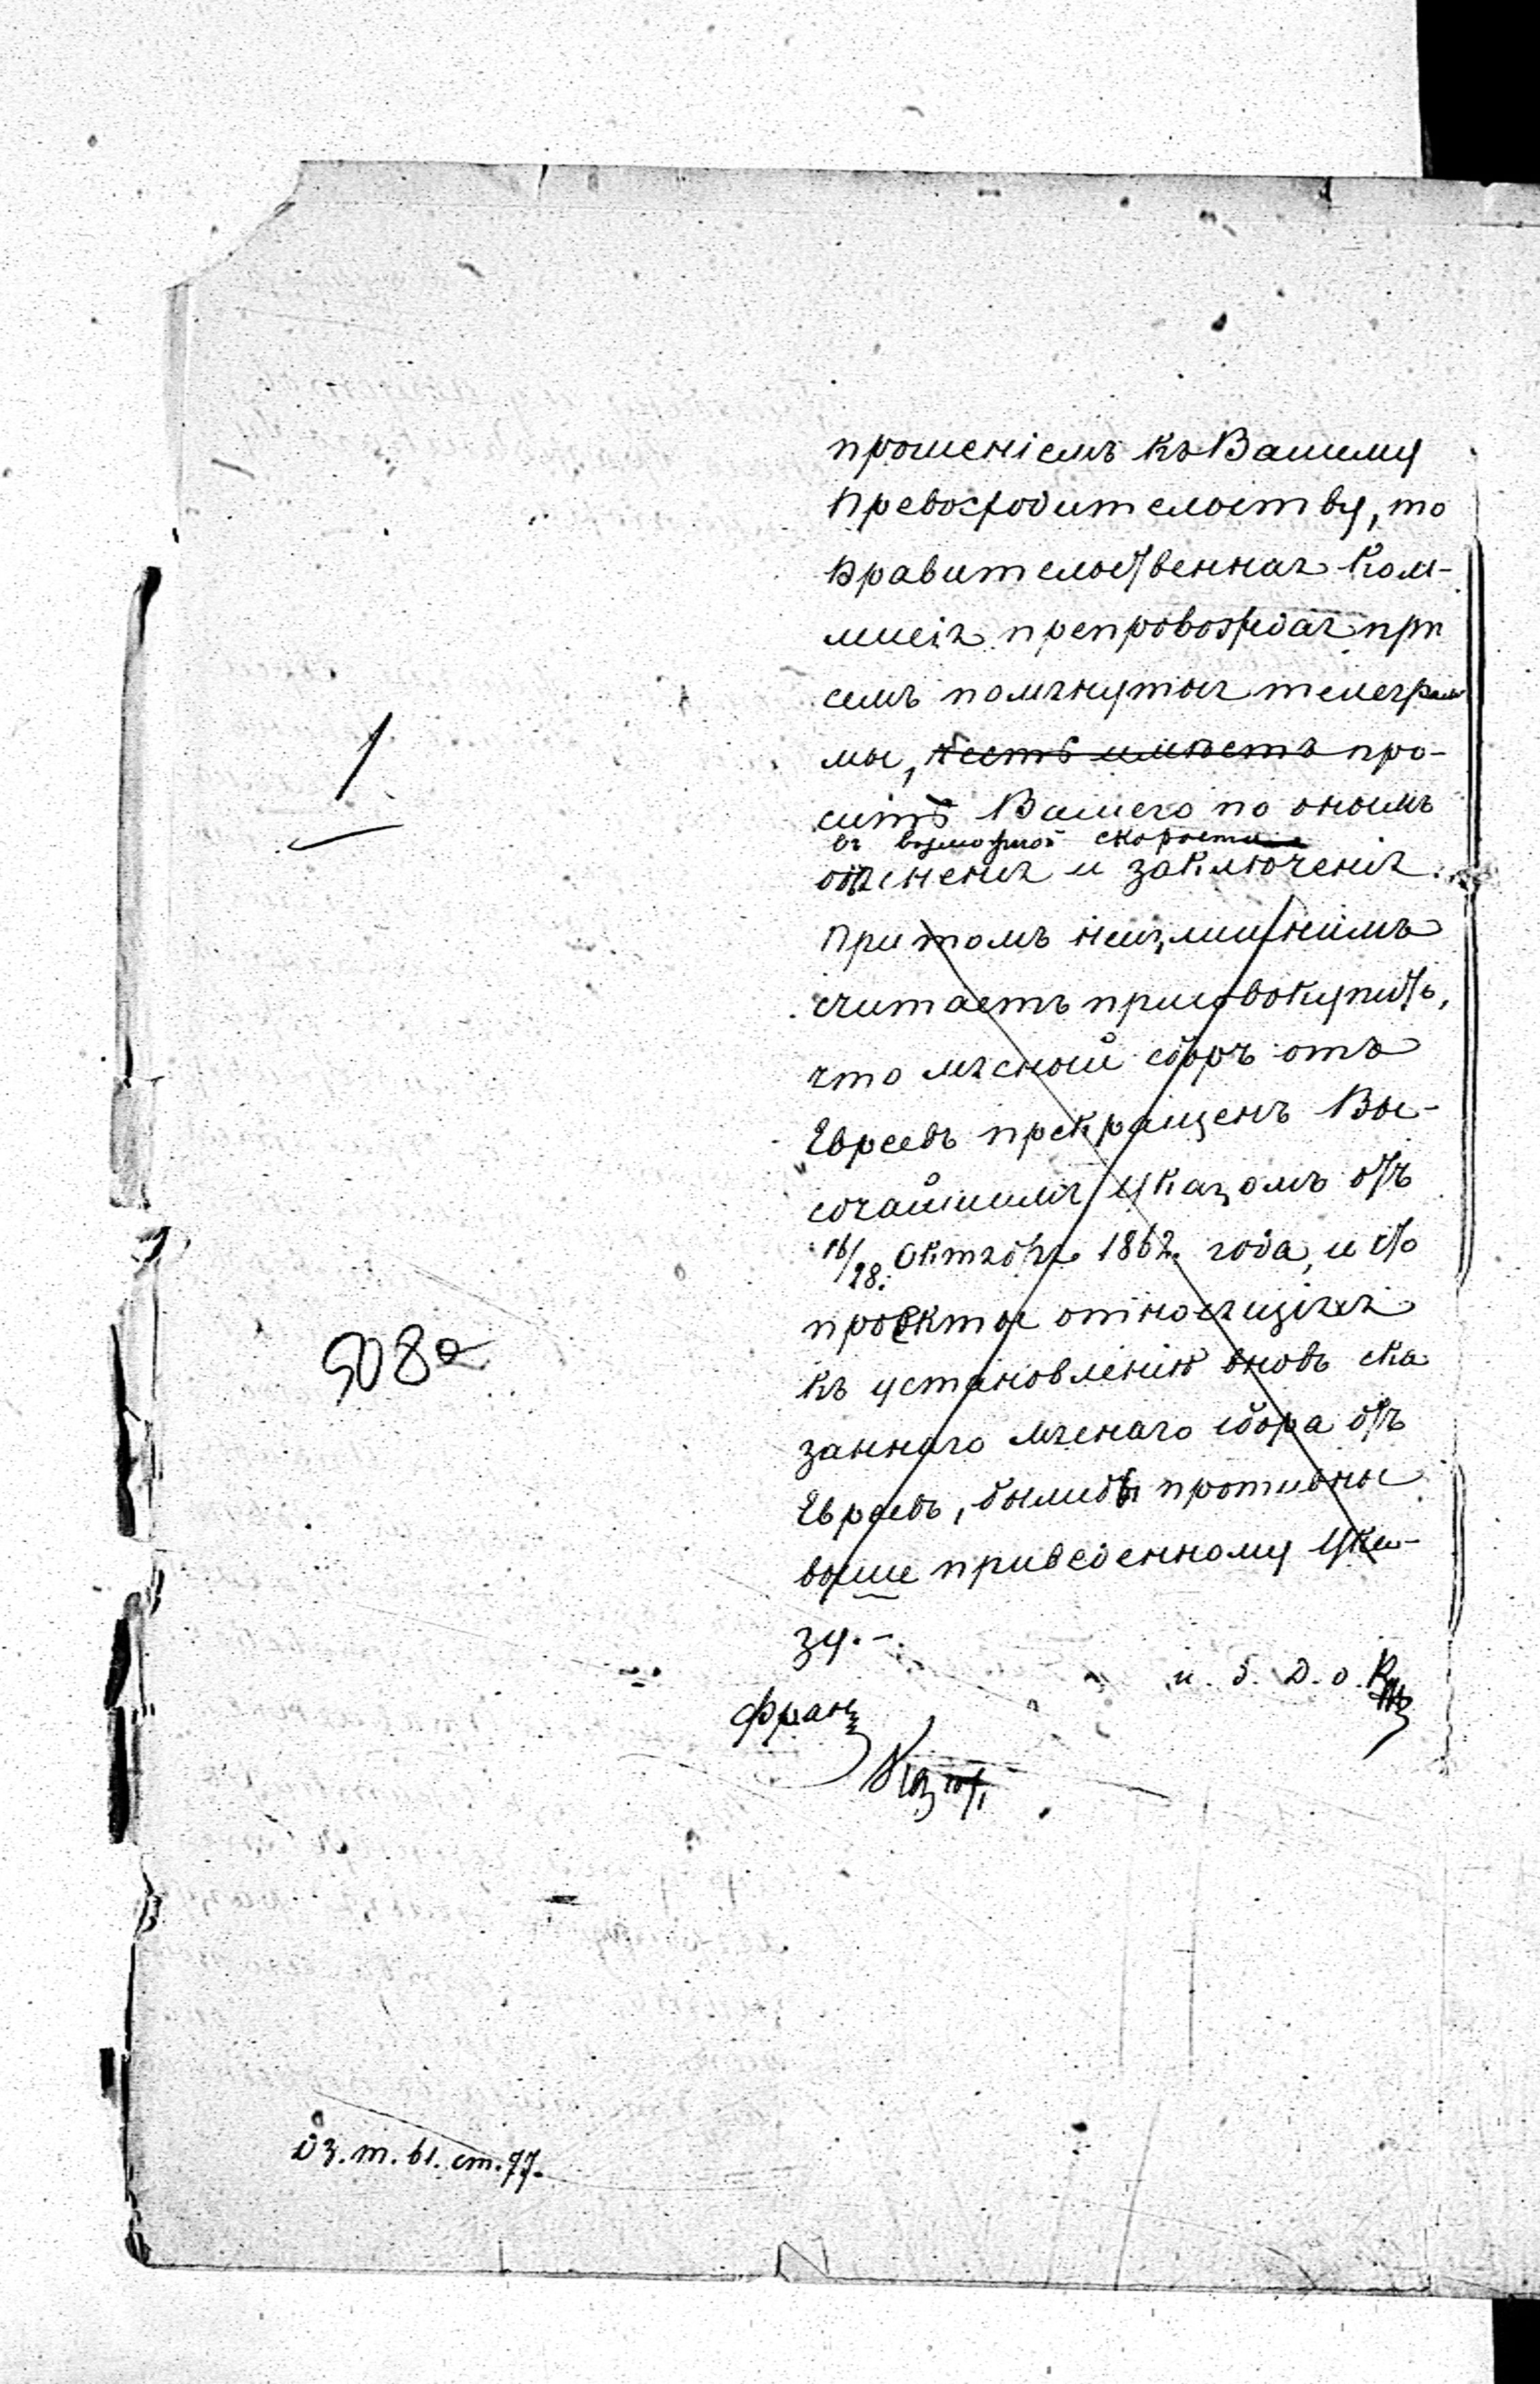 прошеніемъ къ Вашему
Превосходительству, то
Правительственная Ком-
мисія препровождая при
семъ помянутыя телеграм
мы, честь имѣетъ про-
ситъ Вашего по онымъ
въ возможной скорости
объясненія и заключенія.
Притомъ неизлишнимъ
считаетъ присовокупить,
что мясный сборъ отъ
Евреевъ прекращенъ Вы-
сочайшимъ Указомъ отъ
16/28. Октября 1862. года, и что
проекты относящіяся
къ установленію вновь ска
заннаго мяснаго сбора отъ
Евреевъ, былибы противны
выше приведенному Ука-
зу.-
и. д. Д. о.
Франц
1
508a
Дз. т. 61. ст. 77.